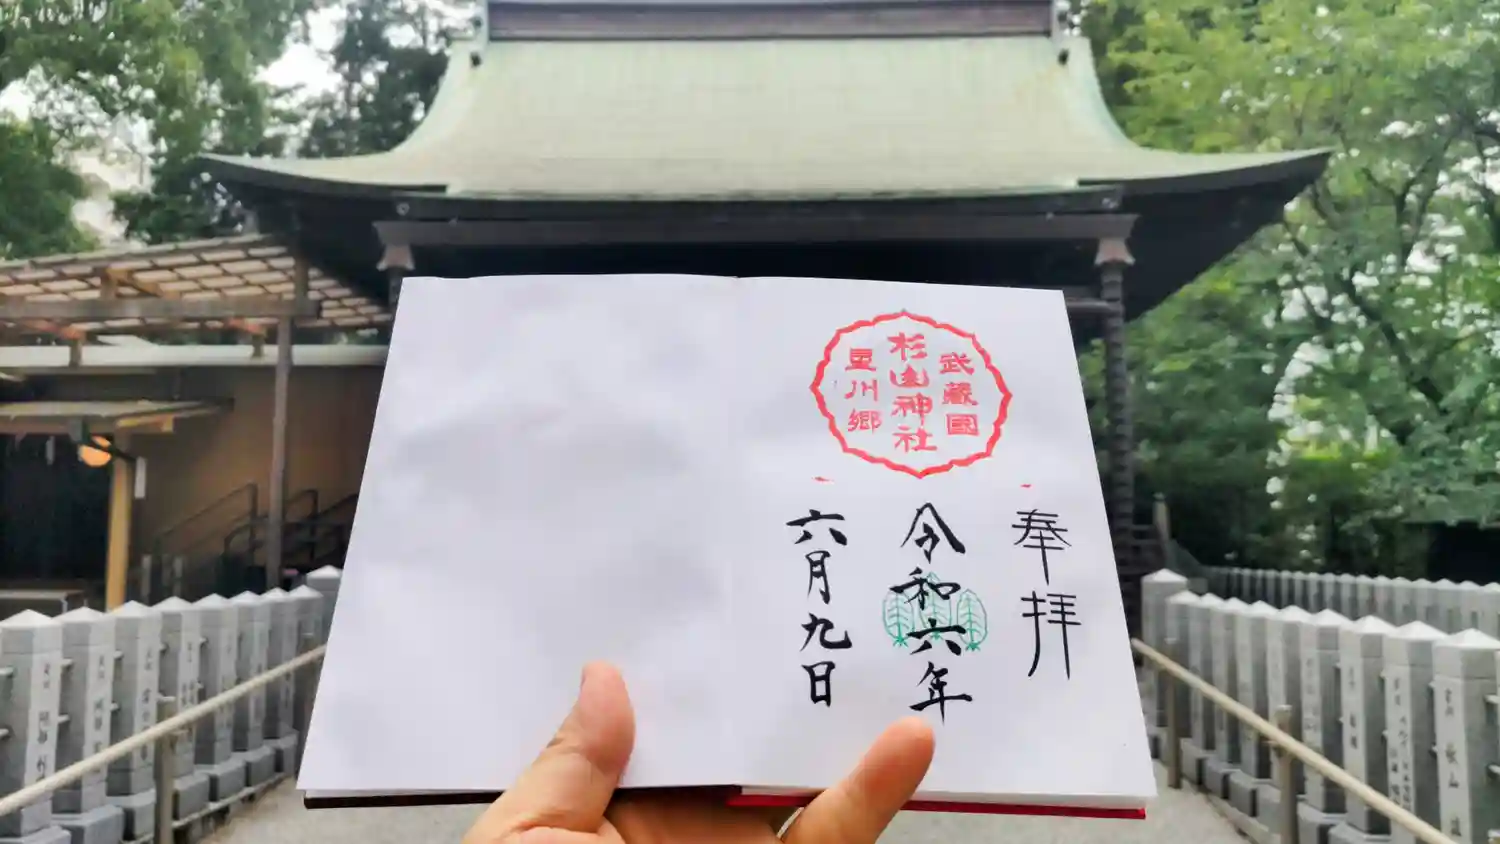 武藏國
杉山神社
星川郷
奉拝
令和六年
六月九日